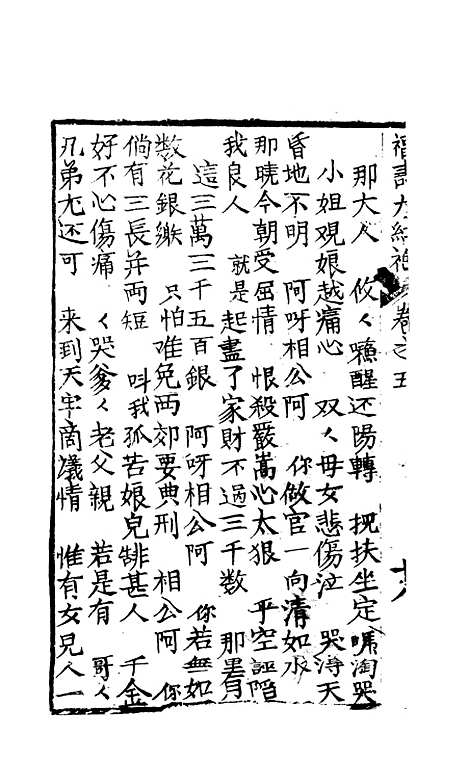 福壽大紅袍 卷之五 十八
那大人 攸〻甦醒还陽轉 挽扶坐定嚎淘哭
小姐观娘越痛心 双〻母女悲傷泣 哭淂天
昏地不明 阿呀相公阿 你做官一向清如水
那曉今朝受屈情 恨殺嚴嵩心太狠 平空誣陷
我良人 就是起盡了家財不過三千数 那里有
這三萬三千五百銀 阿呀相公阿 你若無如
数花銀繳 只怕难免西郊要典刑 相公阿 你
倘有三長并両短 呌我孤苦娘兒靠甚人 千金
好不心傷痛 〻哭爹〻老父親 若是有 哥〻
兄弟尤还可 来到天牢商議情 惟有女兒人一